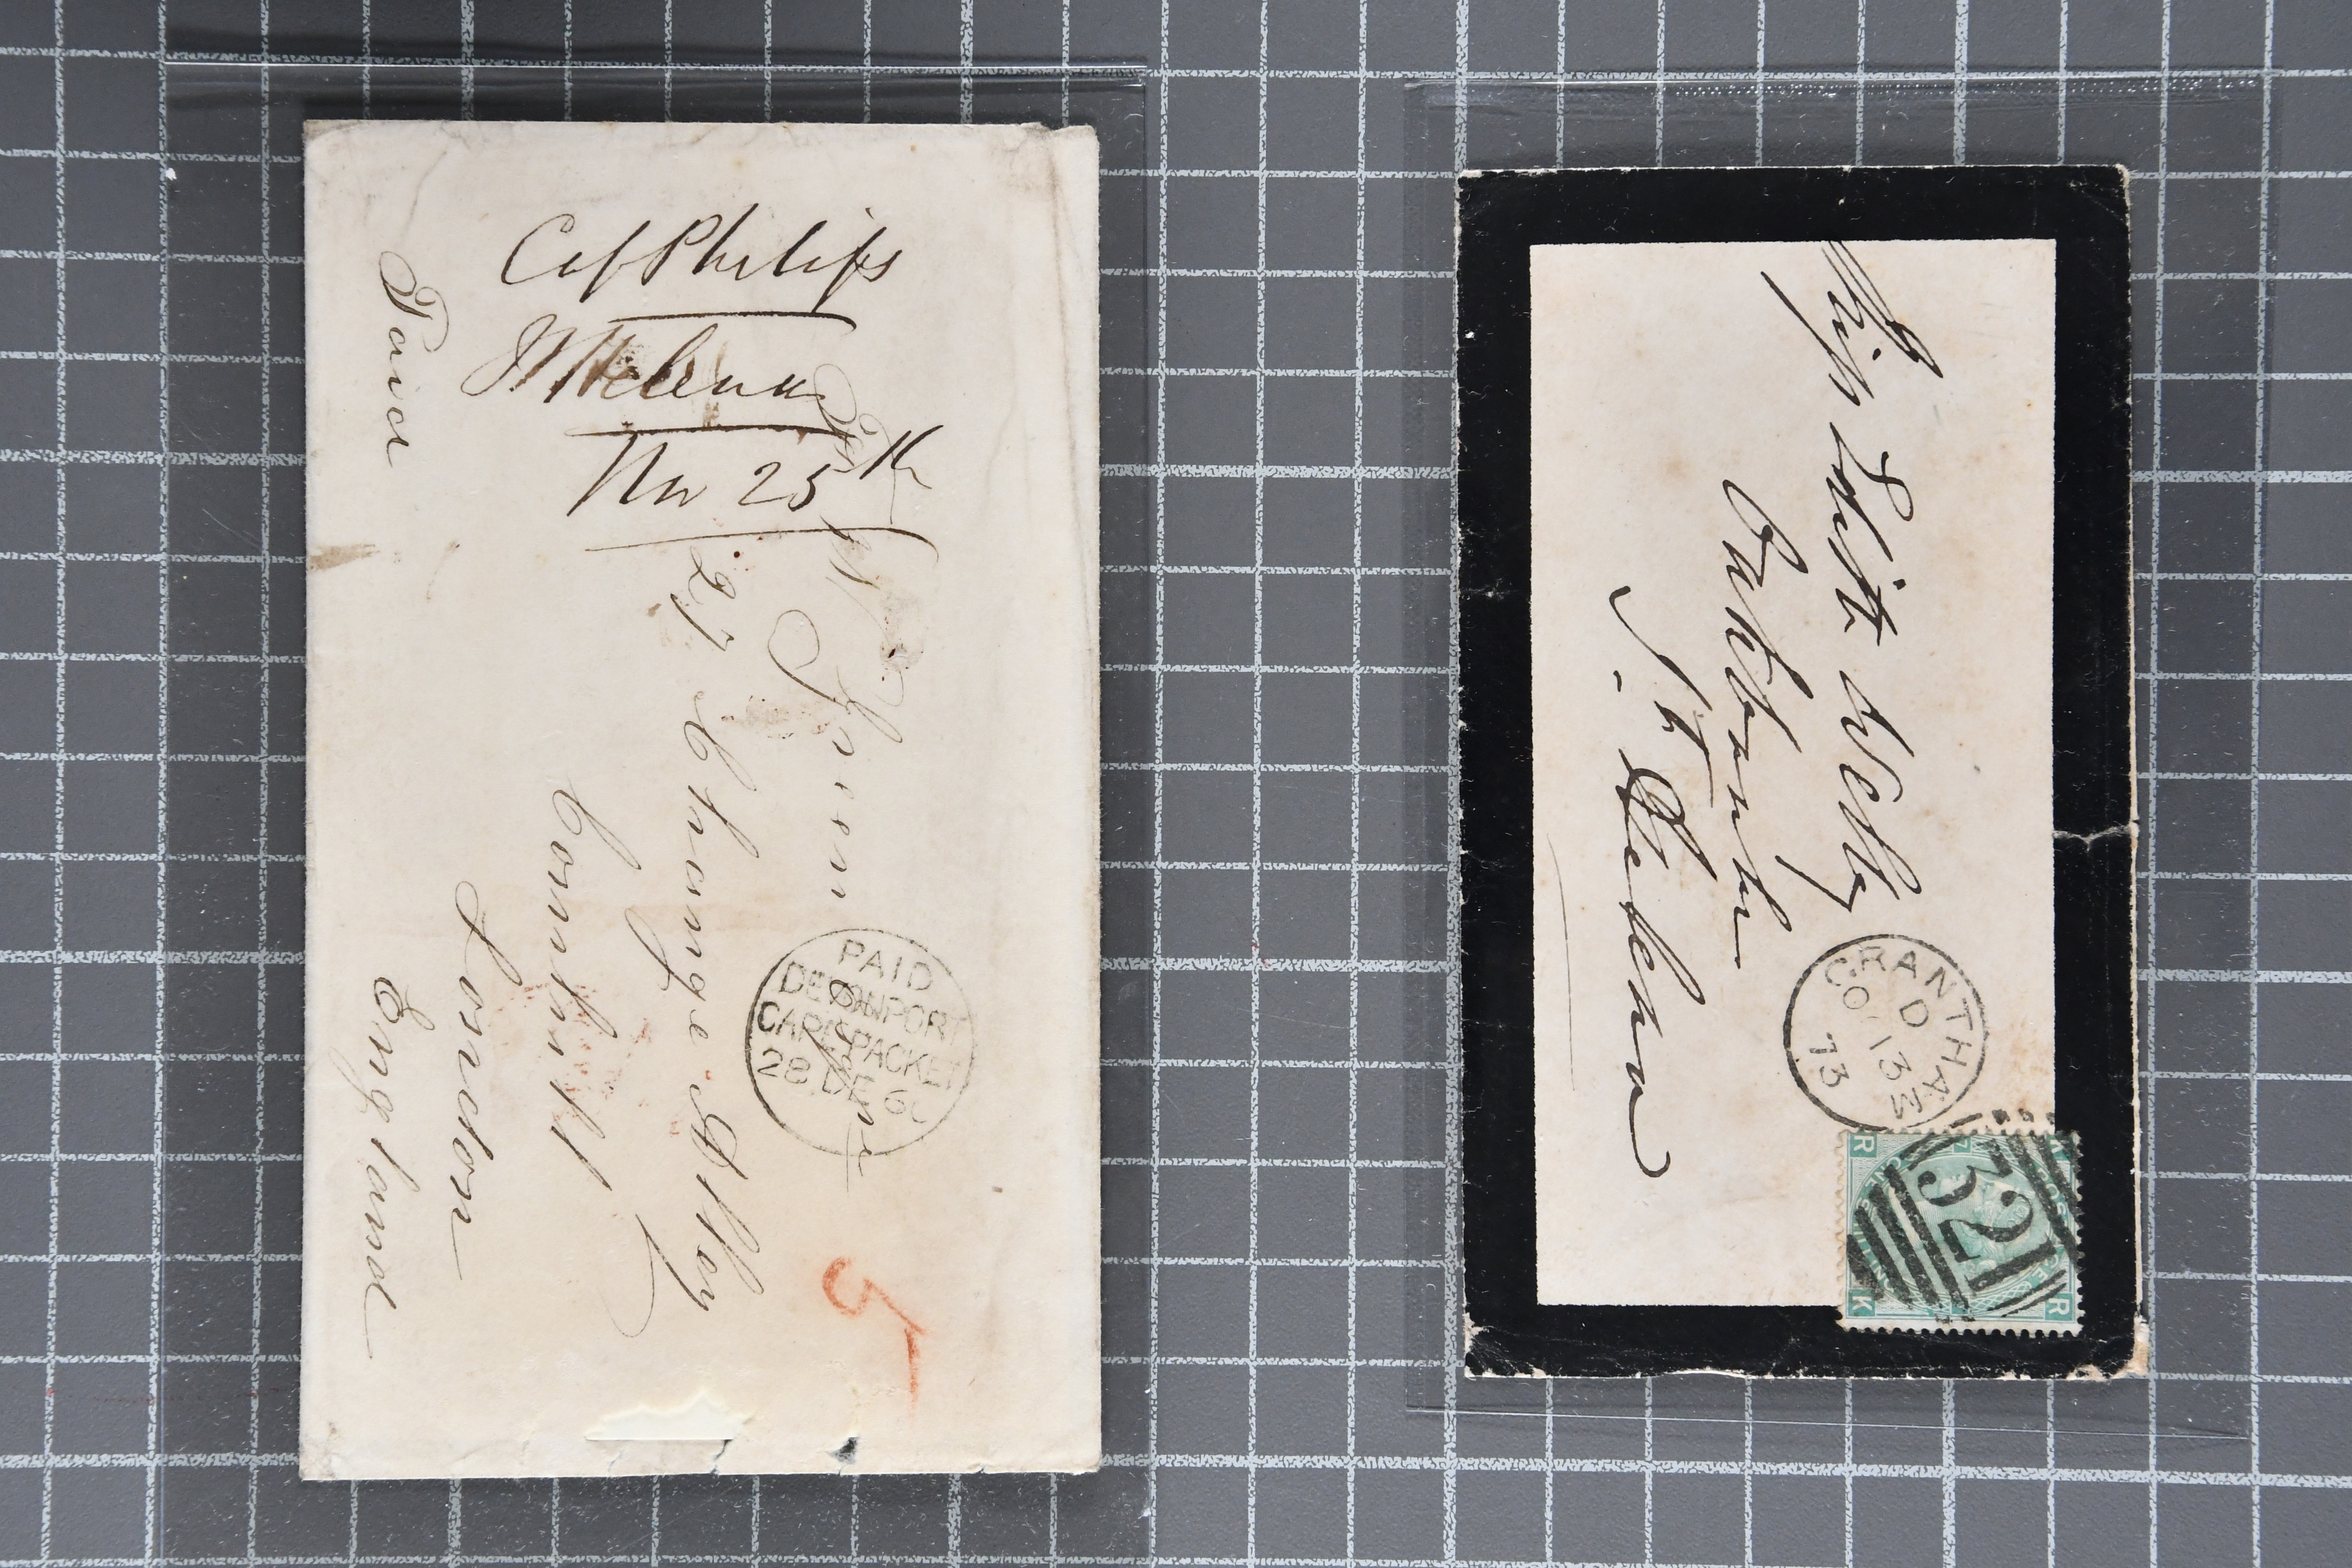 Cap Philips
St Helena
Nov 25th
Paid
27 Change Alley
Cornhill
London
England
PAID
DEVONPORT
CAPE PACKET
28 DE 60
5
Miss Edith Welby
Oakbank
St Helena
GRANTHAM
D
OC 13
73
321
R
K
R